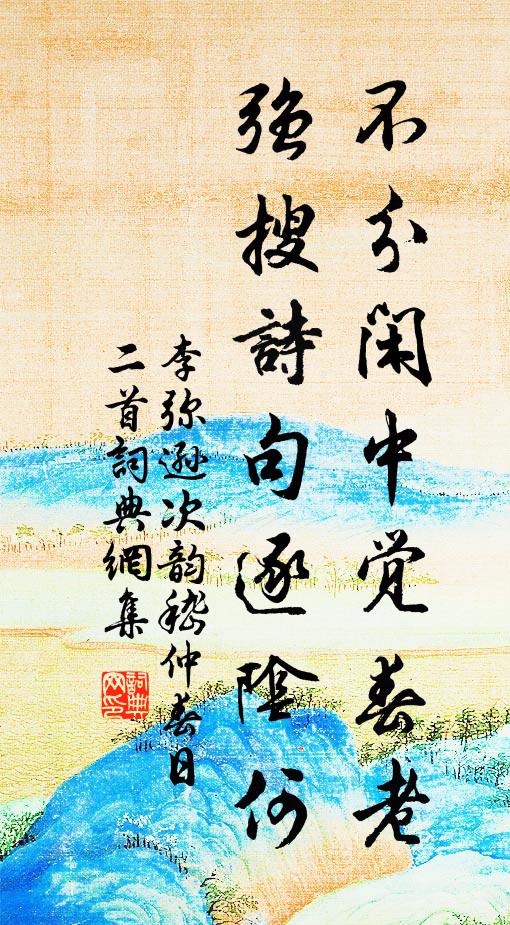 不分闲中觉春老
强搜詩句逐陰何
李弥遜次韵嵇仲春日
二首詞典網集
詞典網印